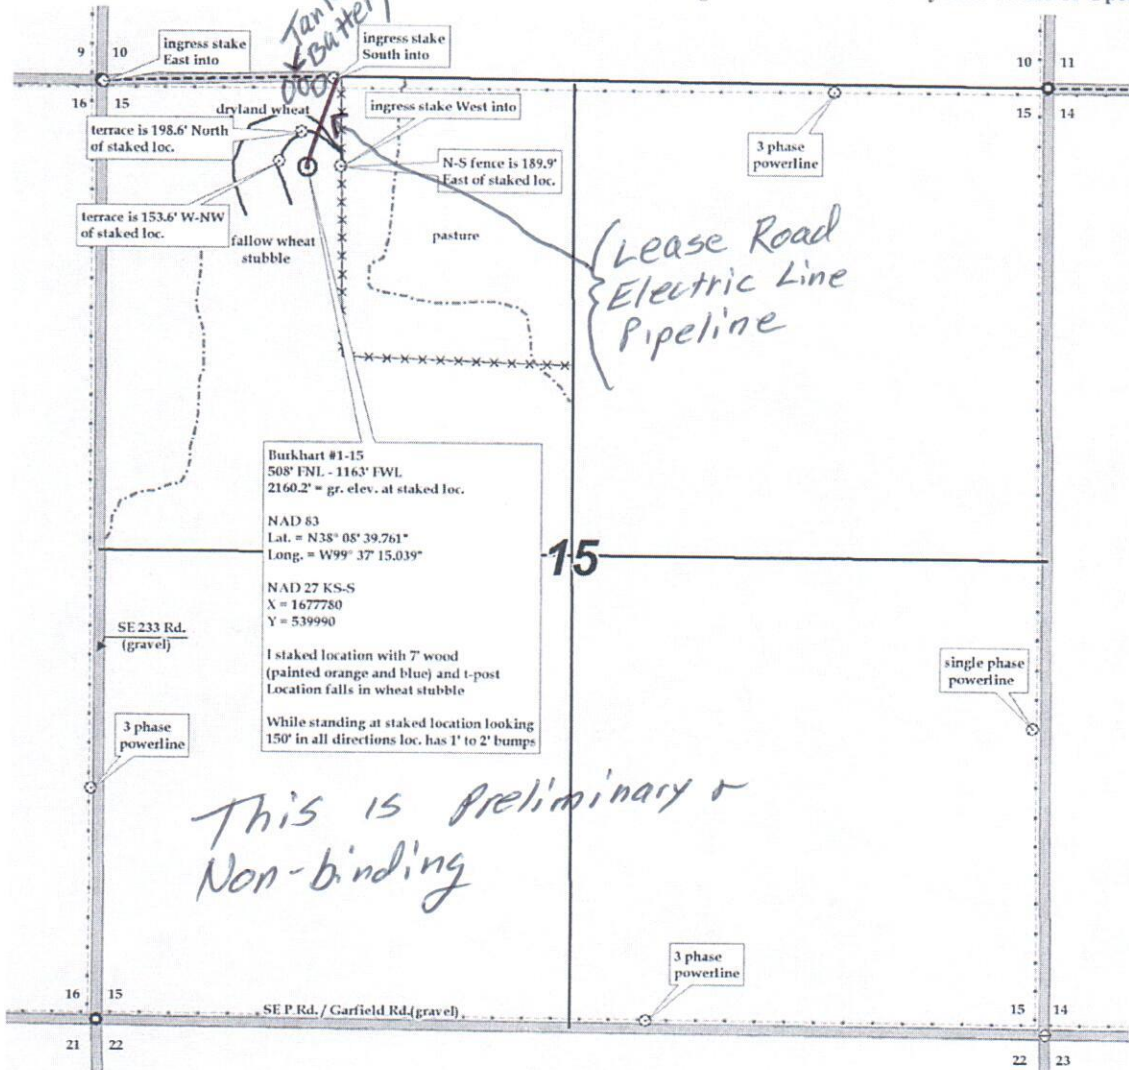 Tank
Battery
9 10
ingress stake
East into
ingress stake
South into
10 11
16 15
000
dryland wheat
ingress stake West into
15 14
terrace is 198.6' North
of staked loc.
3 phase
powerline
N-S fence is 189.9'
East of staked loc.
terrace is 153.6' W-NW
of staked loc.
fallow wheat
stubble
pasture
Lease Road
Electric Line
Pipeline
Burkhart #1-15
508' FNL - 1163' FWL
2160.2' = gr. elev. at staked loc.
NAD 83
Lat. = N38° 08' 39.761"
Long. = W99° 37' 15.039"
NAD 27 KS-S
X = 1677780
Y = 539990
I staked location with 7' wood
(painted orange and blue) and t-post
Location falls in wheat stubble
While standing at staked location looking
150' in all directions loc. has 1' to 2' bumps
15
SE 233 Rd.
(gravel)
single phase
powerline
3 phase
powerline
This is Preliminary &
Non-binding
3 phase
powerline
16 15
SE P Rd. / Garfield Rd.(gravel)
15 14
21 22
22 23